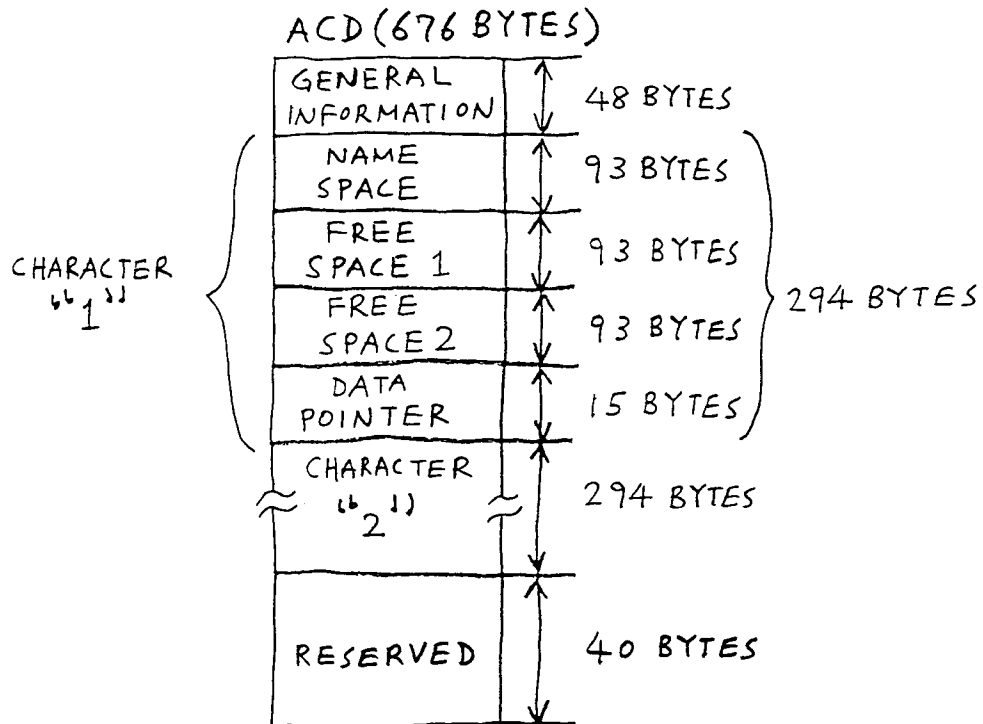 ACD (676 BYTES)
GENERAL
INFORMATION
48 BYTES
NAME
SPACE
93 BYTES
FREE
SPACE 1
93 BYTES
FREE
SPACE 2
93 BYTES
DATA
POINTER
15 BYTES
CHARACTER
“1”
294 BYTES
CHARACTER
“2”
294 BYTES
RESERVED
40 BYTES